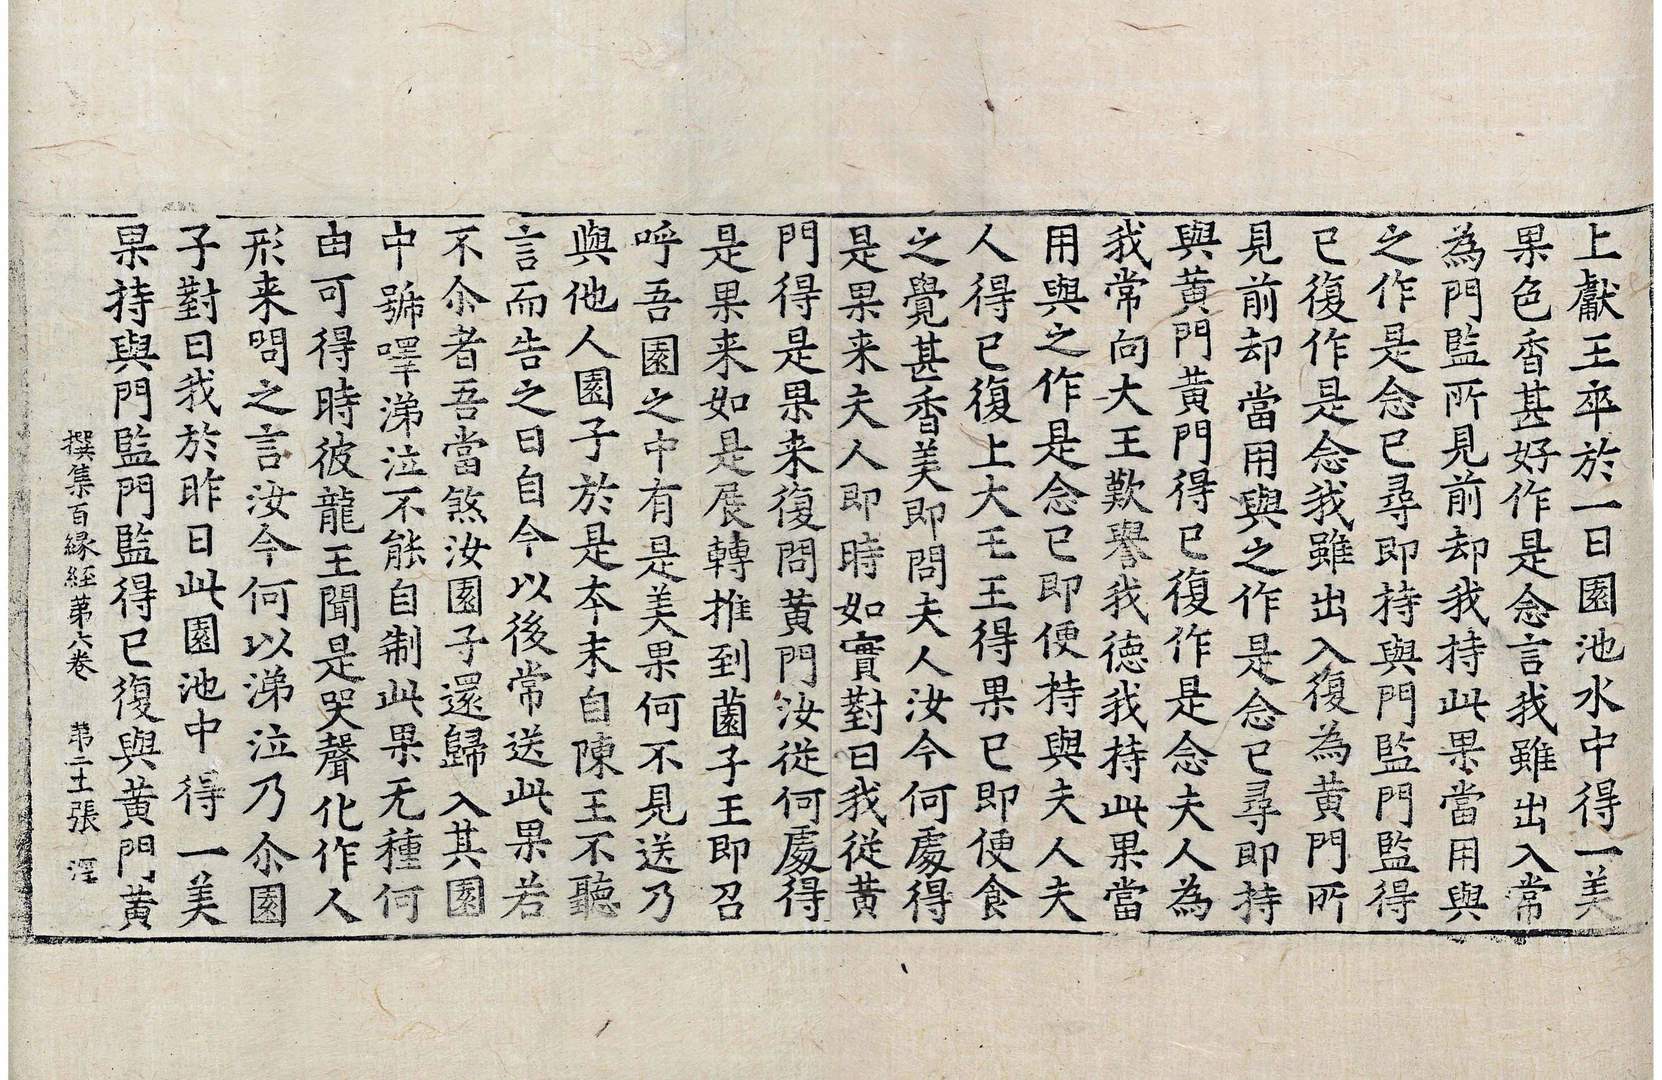 上獻王卒於一日園池水中得一美
果色香甚好作是念言我雖出入常
為門監所見前却我持此果當用與
之作是念已尋即持與門監門監得
已復作是念我雖出入復為黃門所
見前却當用與之作是念已尋即持
與黃門黃門得已復作是念夫人為
我常向大王歎譽我德我持此果當
用與之作是念已即便持與夫人夫
人得已復上大王王得果已即便食
之覺甚香美即問夫人汝今何處得
是果来夫人即時如實對曰我從黃
門得是果来復問黃門汝從何處得
是果来如是展轉推到薗子王即召
呼吾園之中有是美果何不見送乃
與他人園子於是夲末自陳王不聽
言而告之曰自今以後常送此果若
不尒者吾當煞汝園子還歸入其園
中號啼涕泣不能自制此果无種何
由可得時彼龍王聞是哭聲化作人
形来問之言汝今何以涕泣乃尒園
子對曰我於昨日此園池中得一美
果持與門監門監得已復與黃門黃
撰集百緣經第六卷 第二十張 淫